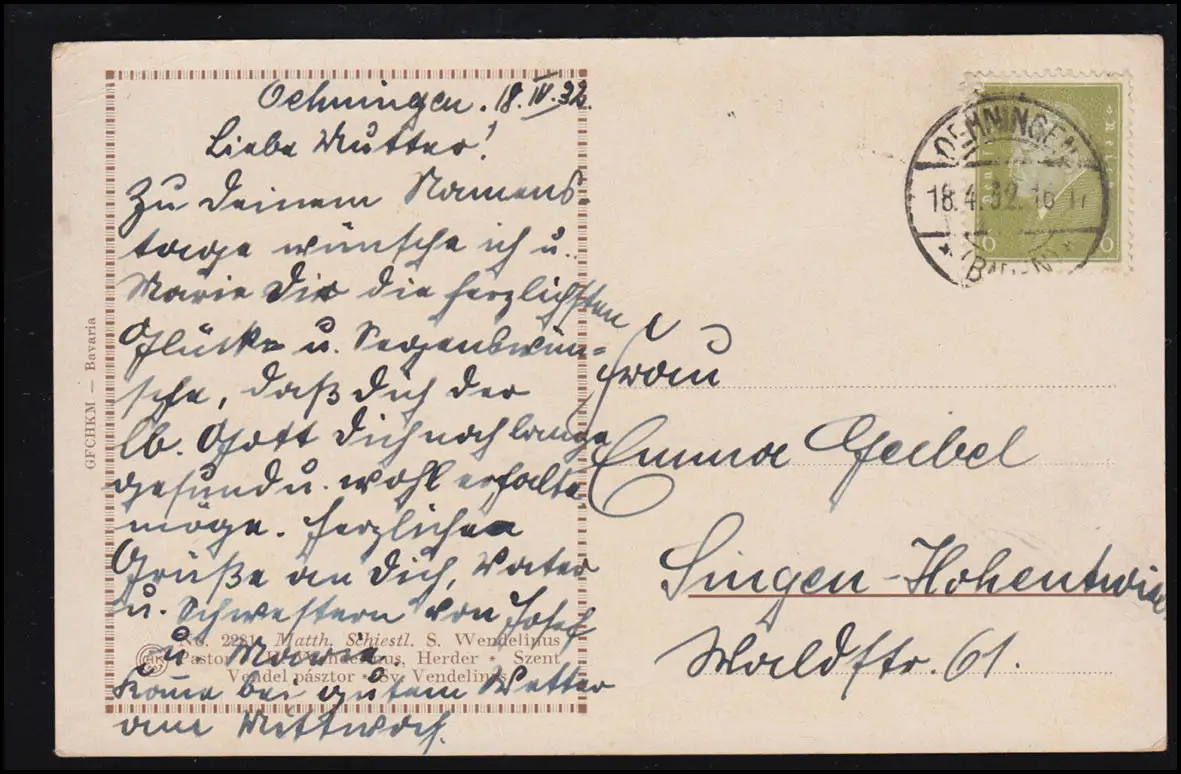 Oehningen. 18. IV. 32.
Liebe Mutter!
Zu Deinem Namens-
tage wünsche ich u.
Marie Dir die herzlichsten
Glücks u. Segenswün-
sche, daß Dich der
lb. Gott Dich noch lange
gesund u. wohl erhalte
möge. Herzlichen
Grüße an Dich, Vater
u. Schwestern von Josef
u. Marie
Komme bei gutem Wetter
am Mittwoch.
GFCHKM — Bavaria
No. 2281. Matth. Schiestl. S. Wendelinus
Pastor Wendelinus, Herder * Szent
Vendel pásztor * Sv. Vendelinus
OEHNINGEN
18.4.32. 16-17
* (BADEN) *
Frau
Emma Geibel
Singen-Hohentwiel
Waldstr. 61.